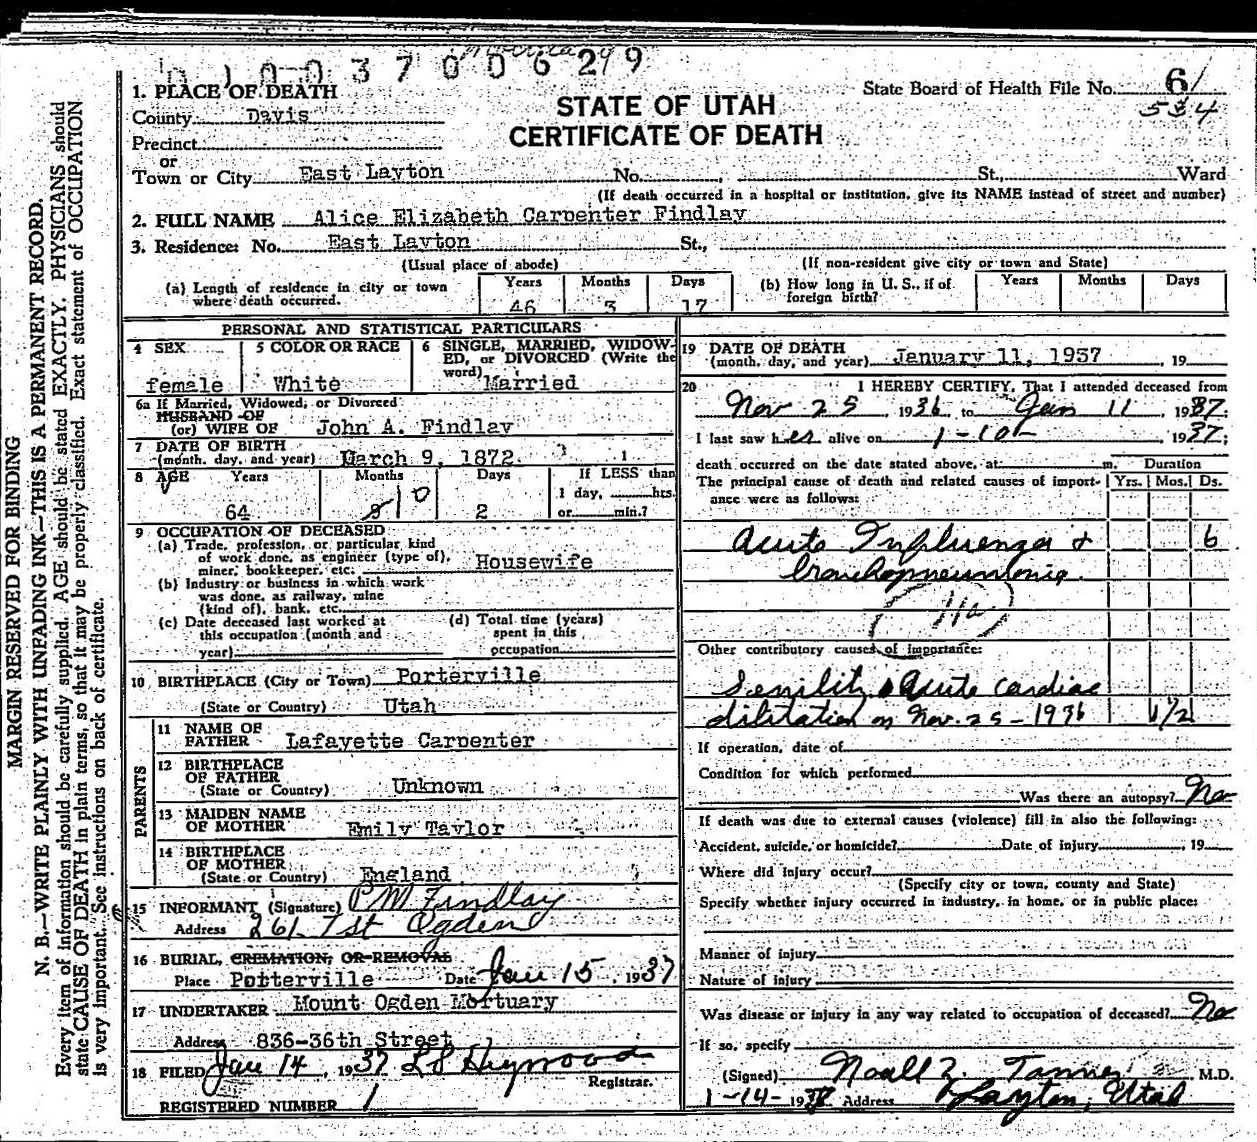 0 1 0 0 3 7 0 0 6 2 9
MARGIN RESERVED FOR BINDING
N. B.—WRITE PLAINLY WITH UNFADING INK—THIS IS A PERMANENT RECORD.
Every item of information should be carefully supplied. AGE should be stated EXACTLY. PHYSICIANS should
state CAUSE OF DEATH in plain terms, so that it may be properly classified. Exact statement of OCCUPATION
is very important. See instructions on back of certificate.
1. PLACE OF DEATH
County Davis
Precinct
or
Town or City East Layton No. , St., Ward
STATE OF UTAH
CERTIFICATE OF DEATH
State Board of Health File No. 61
534
(If death occurred in a hospital or institution, give its NAME instead of street and number)
2. FULL NAME Alice Elizabeth Carpenter Findlay
3. Residence: No. East Layton St.,
(Usual place of abode) (If non-resident give city or town and State)
(a) Length of residence in city or town where death occurred. Years 46 Months 3 Days 17
(b) How long in U. S., if of foreign birth? Years Months Days
PERSONAL AND STATISTICAL PARTICULARS
4 SEX female
5 COLOR OR RACE White
6 SINGLE, MARRIED, WIDOWED, or DIVORCED (Write the word) Married
6a If Married, Widowed, or Divorced
HUSBAND OF
(or) WIFE OF John A. Findlay
7 DATE OF BIRTH
(month, day, and year) March 9, 1872
8 AGE Years 64 Months 10 Days 2
If LESS than 1 day, hrs. or min.?
9 OCCUPATION OF DECEASED
(a) Trade, profession, or particular kind of work done, as engineer (type of), miner, bookkeeper, etc. Housewife
(b) Industry or business in which work was done, as railway, mine (kind of), bank, etc.
(c) Date deceased last worked at this occupation (month and year)
(d) Total time (years) spent in this occupation
10 BIRTHPLACE (City or Town) Porterville
(State or Country) Utah
PARENTS
11 NAME OF FATHER Lafayette Carpenter
12 BIRTHPLACE OF FATHER (State or Country) Unknown
13 MAIDEN NAME OF MOTHER Emily Taylor
14 BIRTHPLACE OF MOTHER (State or Country) England
15 INFORMANT (Signature) P M Findlay
Address 261 7 st Ogden
16 BURIAL, CREMATION, OR REMOVAL
Place Porterville Date Jan 15, 1937
17 UNDERTAKER Mount Ogden Mortuary
Address 836-36th Street
18 FILED Jan 14, 1937 L S Heywood
Registrar.
REGISTERED NUMBER 1
19 DATE OF DEATH
(month, day, and year) January 11, 1937 19
20 I HEREBY CERTIFY, That I attended deceased from
Nov 25, 1936 to Jan 11, 1937;
I last saw her alive on 1-10-, 1937;
death occurred on the date stated above, at m.
The principal cause of death and related causes of importance were as follows:
Duration
Yrs. Mos. Ds.
Acute Influenza & 6
bronchopneumonia.
11a
Other contributory causes of importance:
Senility & Acute cardiac
dilitation on Nov. 25 - 1936 1 1/2
If operation, date of
Condition for which performed
Was there an autopsy? No
If death was due to external causes (violence) fill in also the following:
Accident, suicide, or homicide? Date of injury , 19
Where did injury occur?
(Specify city or town, county and State)
Specify whether injury occurred in industry, in home, or in public place:
Manner of injury
Nature of injury
Was disease or injury in any way related to occupation of deceased? No
If so, specify
(Signed) Noall Z. Tanner M.D.
1-14-1938 Address Layton, Utah